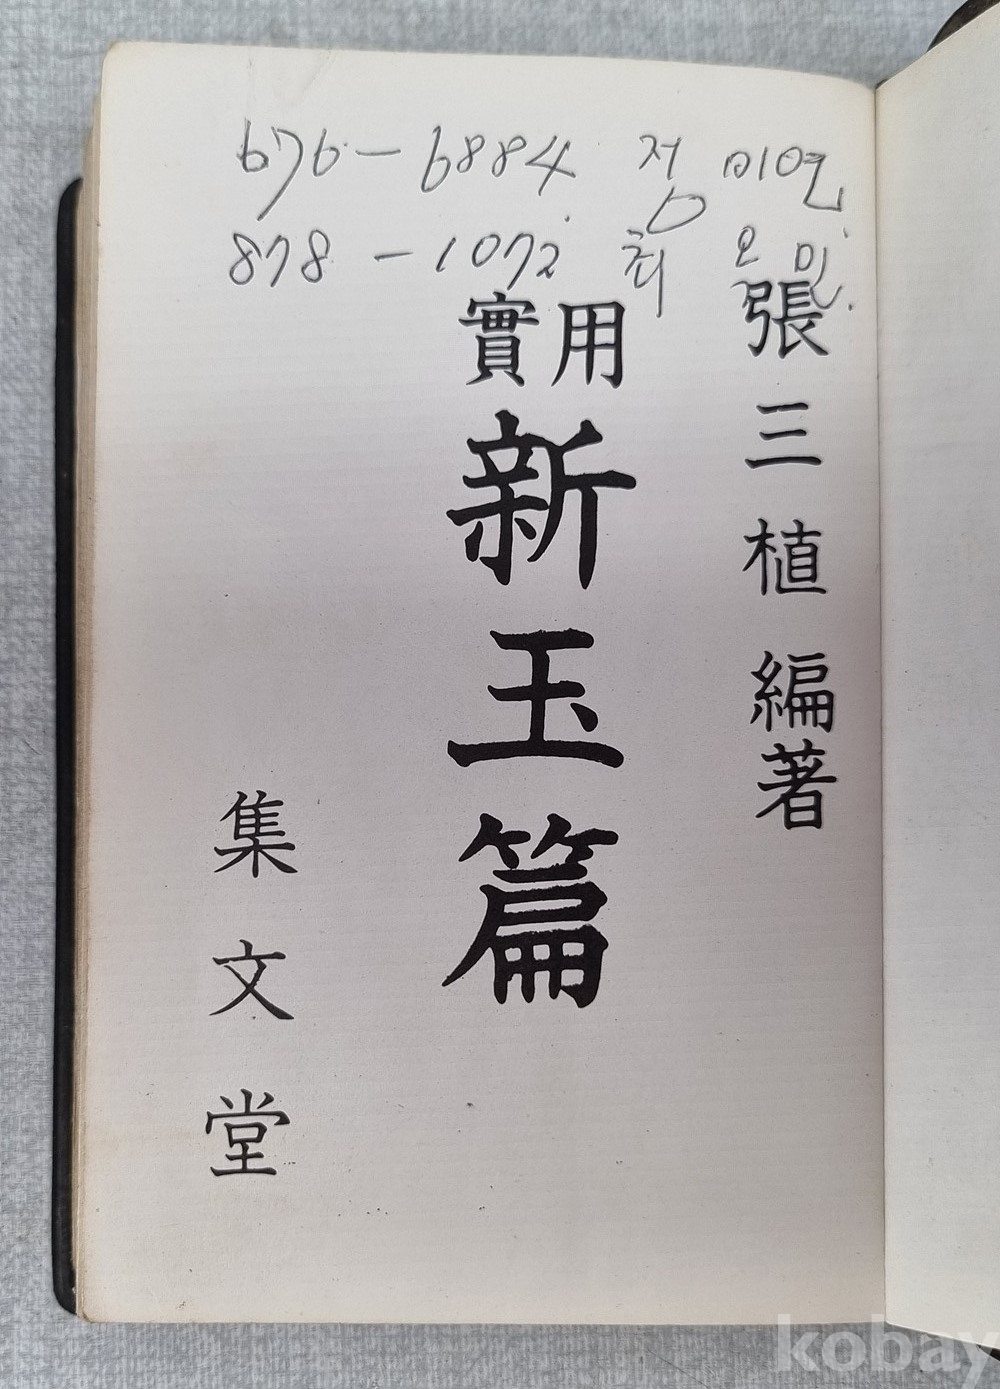 676-6884 정 미연
878-1072 최 오 미
張三植 編著
實用
新玉篇
集文堂
kobay